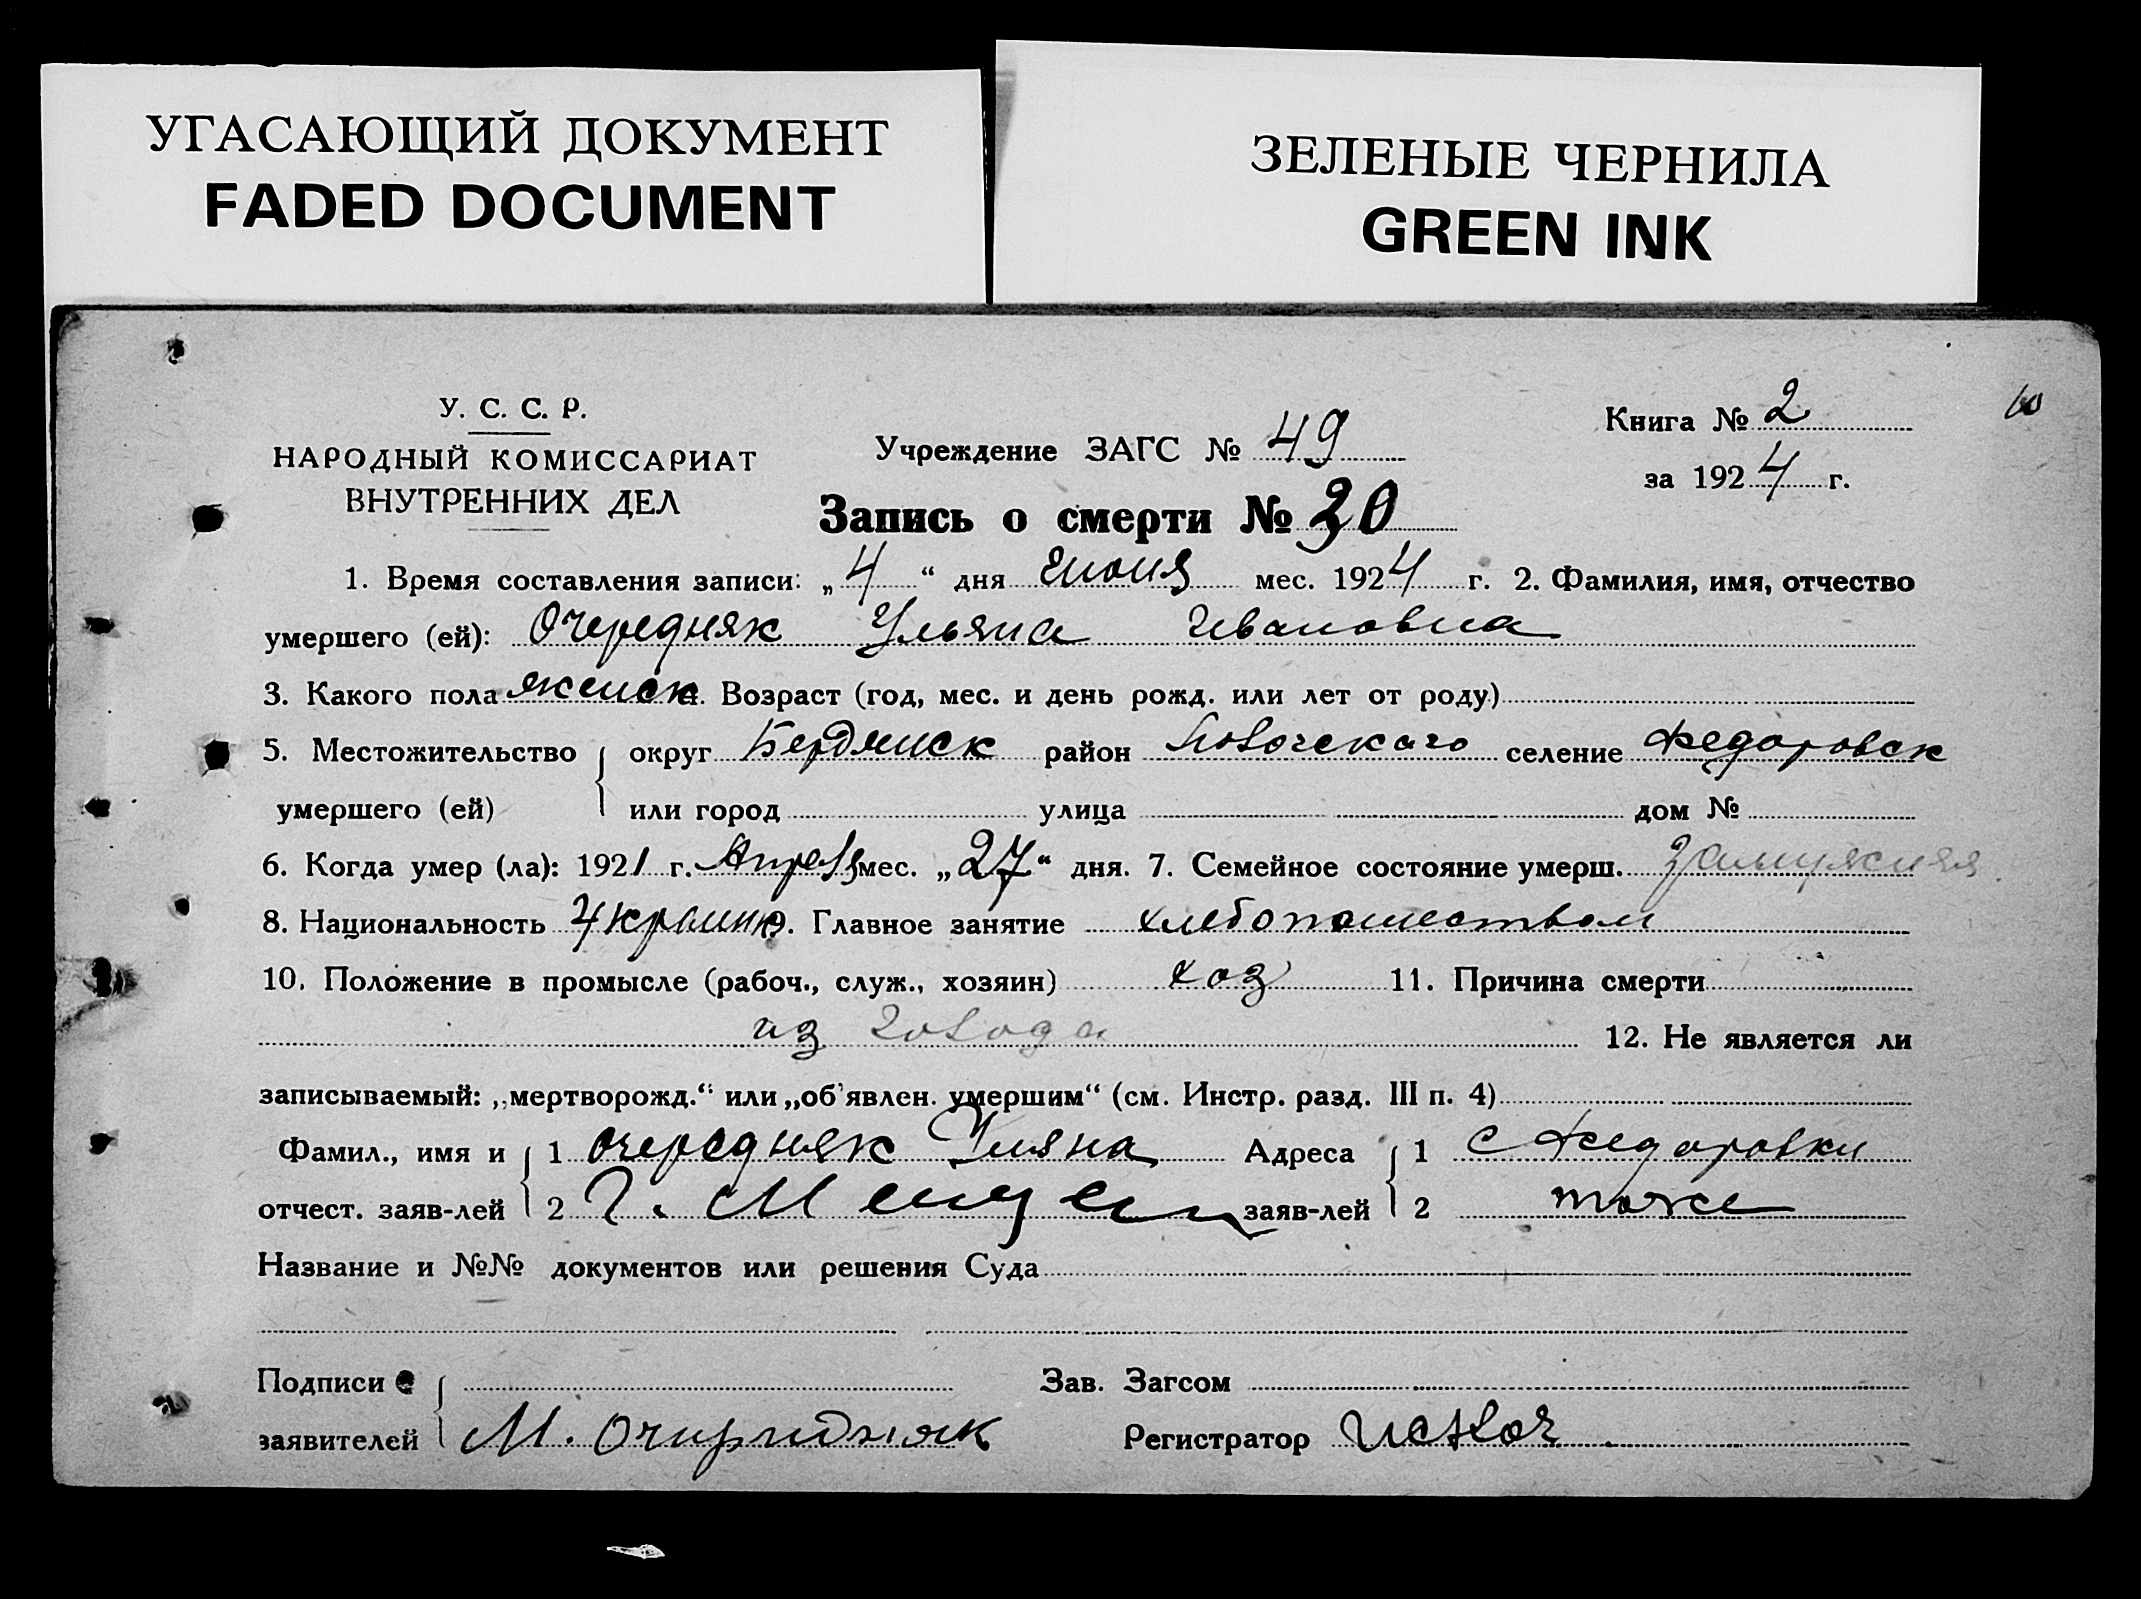 УГАСАЮЩИЙ ДОКУМЕНТ
FADED DOCUMENT
ЗЕЛЕНЫЕ ЧЕРНИЛА
GREEN INK
У. С. С. Р.
НАРОДНЫЙ КОМИССАРИАТ
ВНУТРЕННИХ ДЕЛ
Учреждение ЗАГС № 49
Книга № 2
за 1924 г.
Запись о смерти № 30
1. Время составления записи: „4“ дня Июня мес. 1924 г. 2. Фамилия, имя, отчество
умершего (ей): Очередняк Ульяна Ивановна
3. Какого пола женск 4. Возраст (год, мес. и день рожд. или лет от роду)
5. Местожительство умершего (ей) округ Бердянск район селение Федоровск
или город улица дом №
6. Когда умер (ла): 1921 г. Апреля мес. „27“ дня. 7. Семейное состояние умерш. замужняя
8. Национальность Украин 9. Главное занятие хлебопашеством
10. Положение в промысле (рабоч., служ., хозяин) хоз 11. Причина смерти
из голода 12. Не является ли
записываемый: „мертворожд.“ или „об'явлен. умершим“ (см. Инстр. разд. III п. 4)
Фамил., имя и отчест. заяв-лей 1 Очередняк Адреса заяв-лей 1 с Федоровки
2 2 тоже
Название и №№ документов или решения Суда
Подписи Зав. Загсом
заявителей М. Очиридняк Регистратор